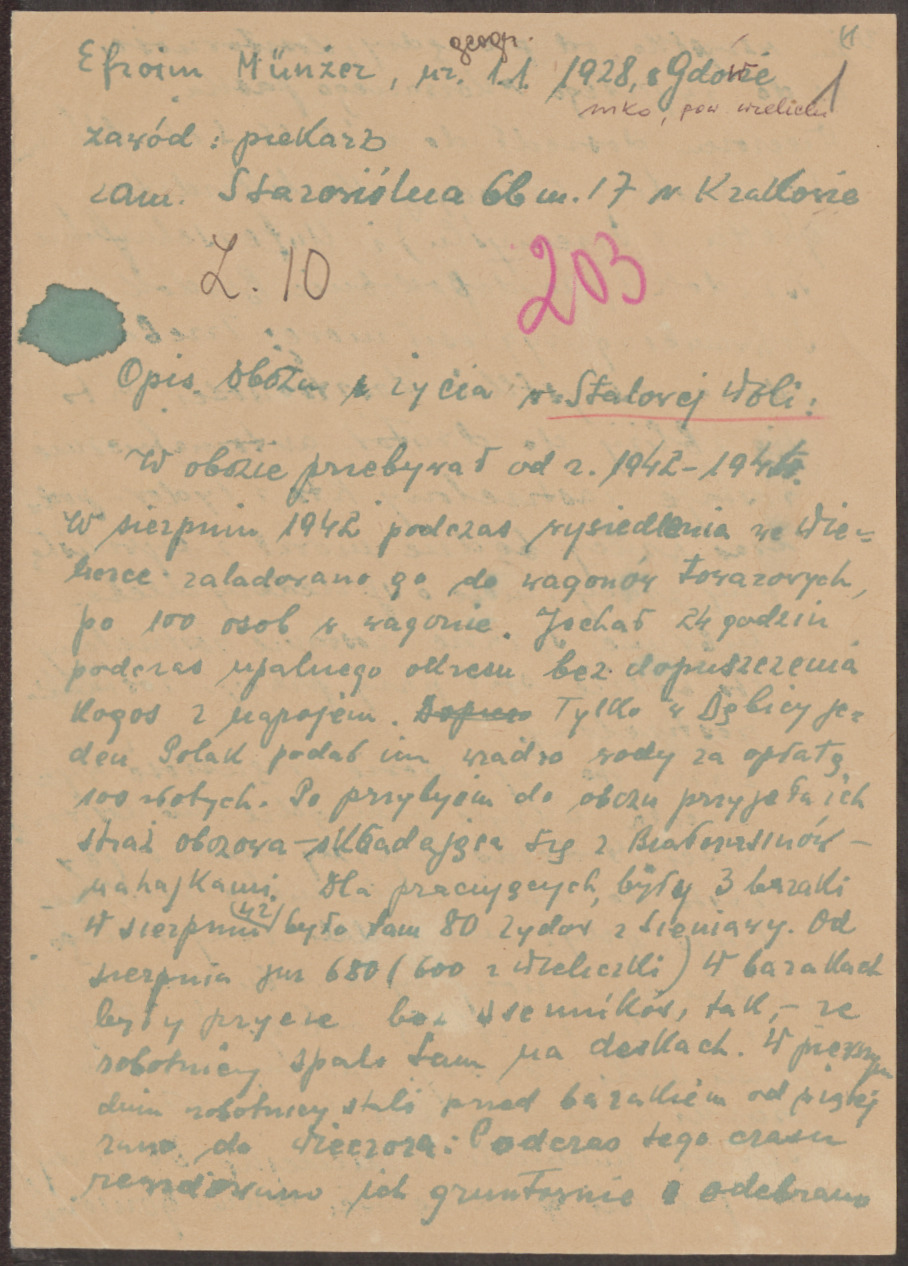 geogr.
Efroim Münzer, ur. 1.1. 1928, Gdowie
1
pow wielicki
zawód: piekarz
zam. Starowiślna 66 m. 17 w Krakowie
Z. 10 203
Opis obozu i życia w Stalowej Woli:
W obozie przebywał od r. 1942-194
W sierpniu 1942 podczas wysiedlenia we Wie-
liczce załadowano go do wagonów towarowych,
po 100 osob w wagonie. Jechał 24 godzin
podczas upalnego okresu bez dopuszczenia
kogos z napojem. Tylko w Dębicy je-
den Polak podał im wiadro wody za opłatą
100 złotych. Po przybyciu do obozu przyjęła ich
straż obozowa - składająca się z Białorusinów -
nahajkami. Dla pracujących były 3 baraki
W sierpniu było tam 80 Zydow z Sieniawy. Od
sierpnia juz 680 (600 z Wieliczki) W barakach
były prycze bez sienników, tak, - ze
robotnicy spali tam na deskach. W pierwszym
dniu robotnicy stali przed barakiem od piątej
rano do wieczora: Podczas tego czasu
rewidowano ich gruntownie i odebrano